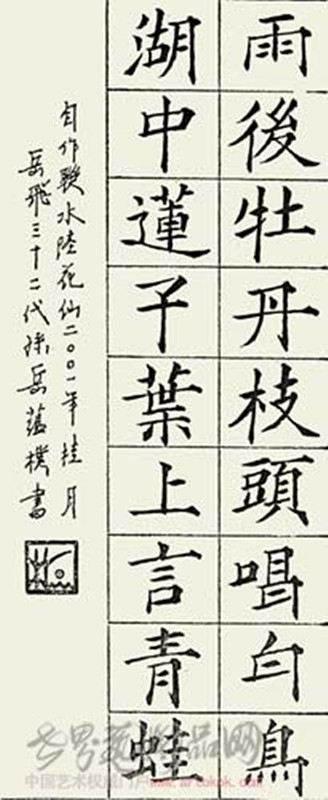 雨後牡丹枝頭唱白鳥
湖中蓮子葉上言青蛙
自作聯水陸花仙二〇〇一年桂月
岳飛三十二代孫岳蘊樸書
中国艺术权威门户